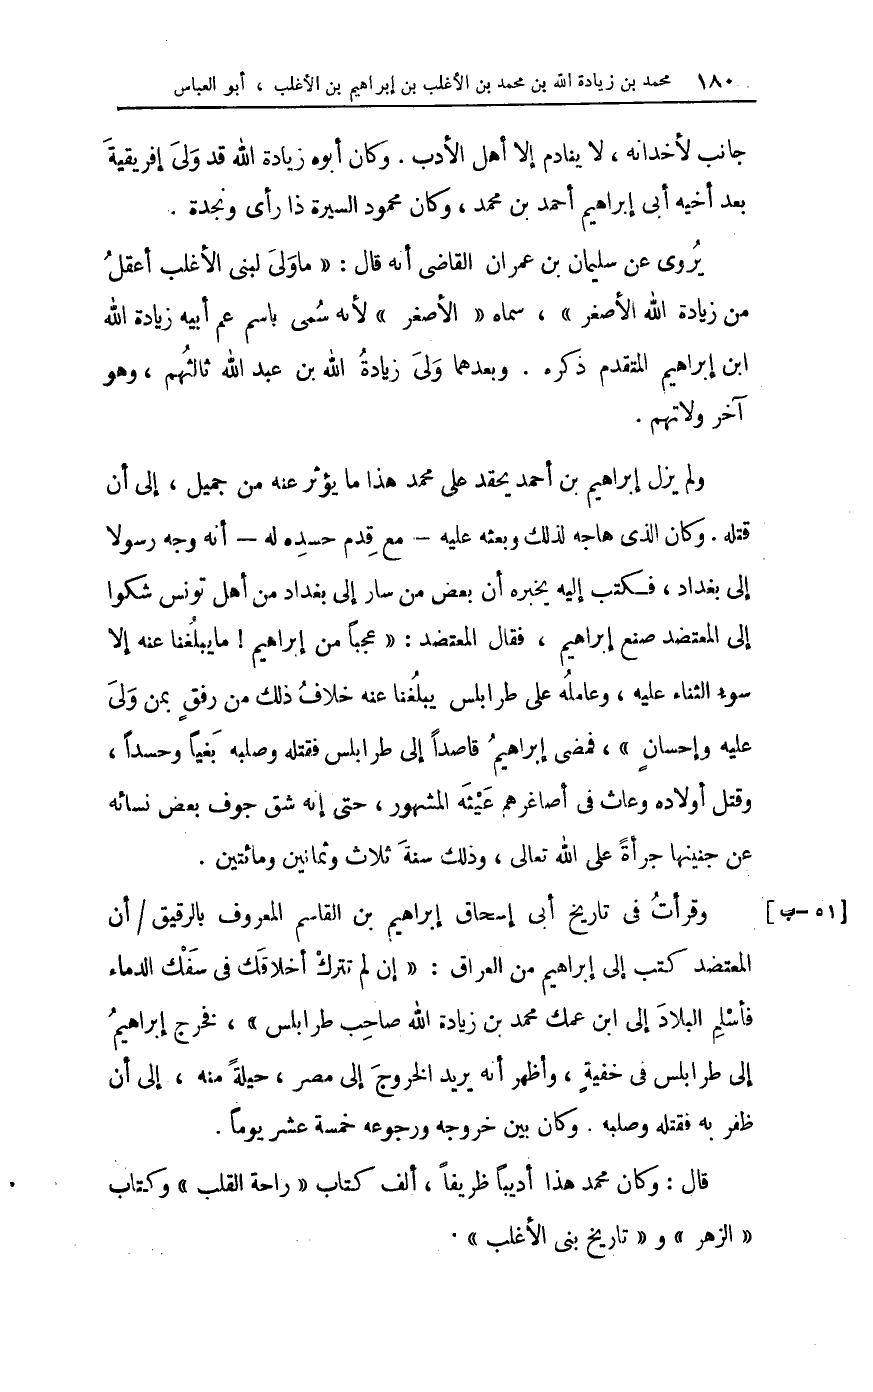 ١٨٠ محمد بن زيادة الله بن محمد بن الأغلب بن إبراهيم بن الأغلب ، أبو العباس
جانب لأخدانه ، لا ينادم إلا أهل الأدب . وكان أبوه زيادة الله قد وَلىَ إفريقيةَ
بعد أخيه أبى إبراهيم أحمد بن محمد ، وكان محمود السيرة ذا رأى ونجدة .
يُروى عن سليمان بن عمران القاضى أنه قال : « ماوَلىَ لبنى الأغلب أعقلُ
من زيادة الله الأصغر » ، سماه « الأصغر » لأنه سُمى باسم عم أبيه زيادة الله
ابن إبراهيم المتقدم ذكره . وبعدهما وَلىَ زيادةُ الله بن عبد الله ثالثُهم ، وهو
آخر ولاتهم .
ولم يزل إبراهيم بن أحمد يحقد على محمد هذا ما يؤثر عنه من جميل ، إلى أن
قتله . وكان الذى هاجه لذلك وبعثه عليه – مع قِدم حسدِه له – أنه وجه رسولا
إلى بغداد ، فكتب إليه يخبره أن بعض من سار إلى بغداد من أهل تونس شكوا
إلى المعتضد صنع إبراهيم ، فقال المعتضد : « عجباً من إبراهيم ! مايبلُغنا عنه إلا
سوء الثناء عليه ، وعاملُه على طرابلس يبلُغنا عنه خلافُ ذلك من رفقٍ بمن وَلىَ
عليه وإحسانٍ » ، فمضى إبراهيمُ قاصداً إلى طرابلس فقتله وصلبه بَغياً وحسداً ،
وقتل أولاده وعاث فى أصاغرهم عَيْثَه المشهور ، حتى إنه شق جوف بعض نسائه
عن جنينها جرأةً على الله تعالى ، وذلك سنةَ ثلاث وثمانين ومائتين .
[٥١-ب] وقرأتُ فى تاريخ أبى إسحاق إبراهيم بن القاسم المعروف بالرقيق / أن
المعتضد كتب إلى إبراهيم من العراق : « إن لم تتركْ أخلاقَك فى سَفْك الدماء
فأسْلِمِ البلادَ إلى ابن عمك محمد بن زيادة الله صاحِب طرابلس » ، فخرج إبراهيمُ
إلى طرابلس فى خفيةٍ ، وأظهر أنه يريد الخروجَ إلى مصر ، حيلةً منه ، إلى أن
ظفر به فقتله وصلبه . وكان بين خروجه ورجوعه خمسة عشر يوماً .
قال : وكان محمد هذا أديباً ظريفاً ، ألف كتاب « راحة القلب » وكتاب
« الزهر » و « تاريخ بنى الأغلب » .